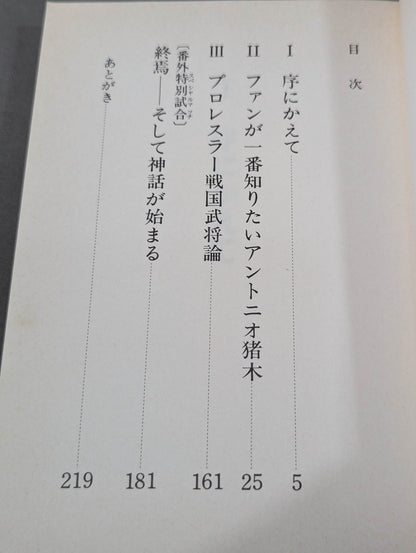 目次
Ⅰ 序にかえて 5
Ⅱ ファンが一番知りたいアントニオ猪木 25
Ⅲ プロレスラー戦国武将論 161
〔番外特別試合〕
スペシャルマッチ
終焉――そして神話が始まる 181
あとがき 219